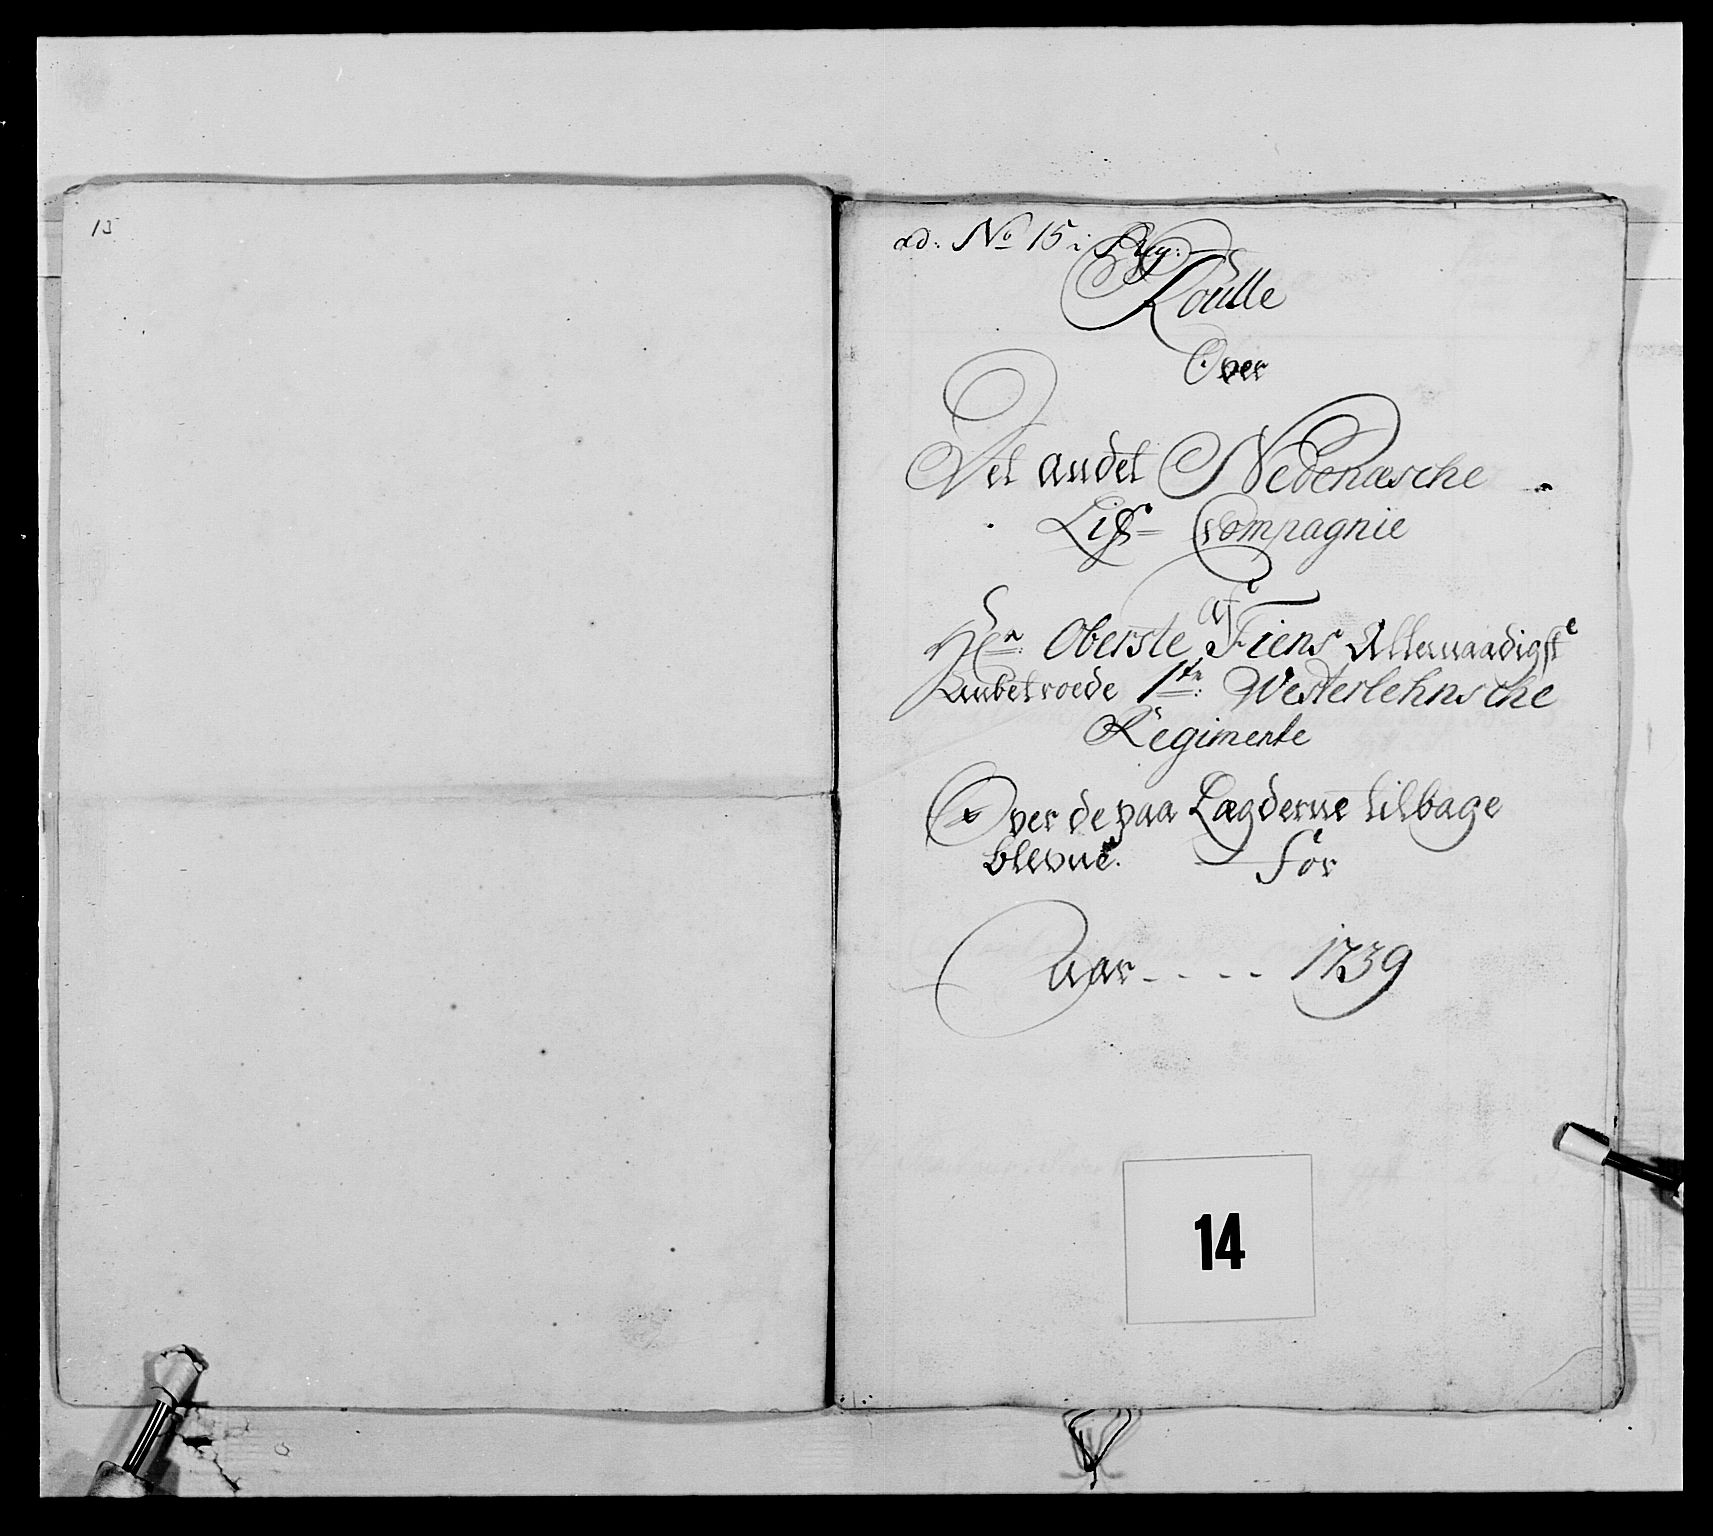 15
ad: No 15 i Reg:
Roulle
Over
Det andet Nedenæsche
Lifs= Compagnie
af
Hrn Oberste Fiens Allernaadigste
Anbetroede 1te: Westerlehnsche
Regimente
Over de paa Lægderne tilbage
blevne. for
Aar - - - - 1739
14